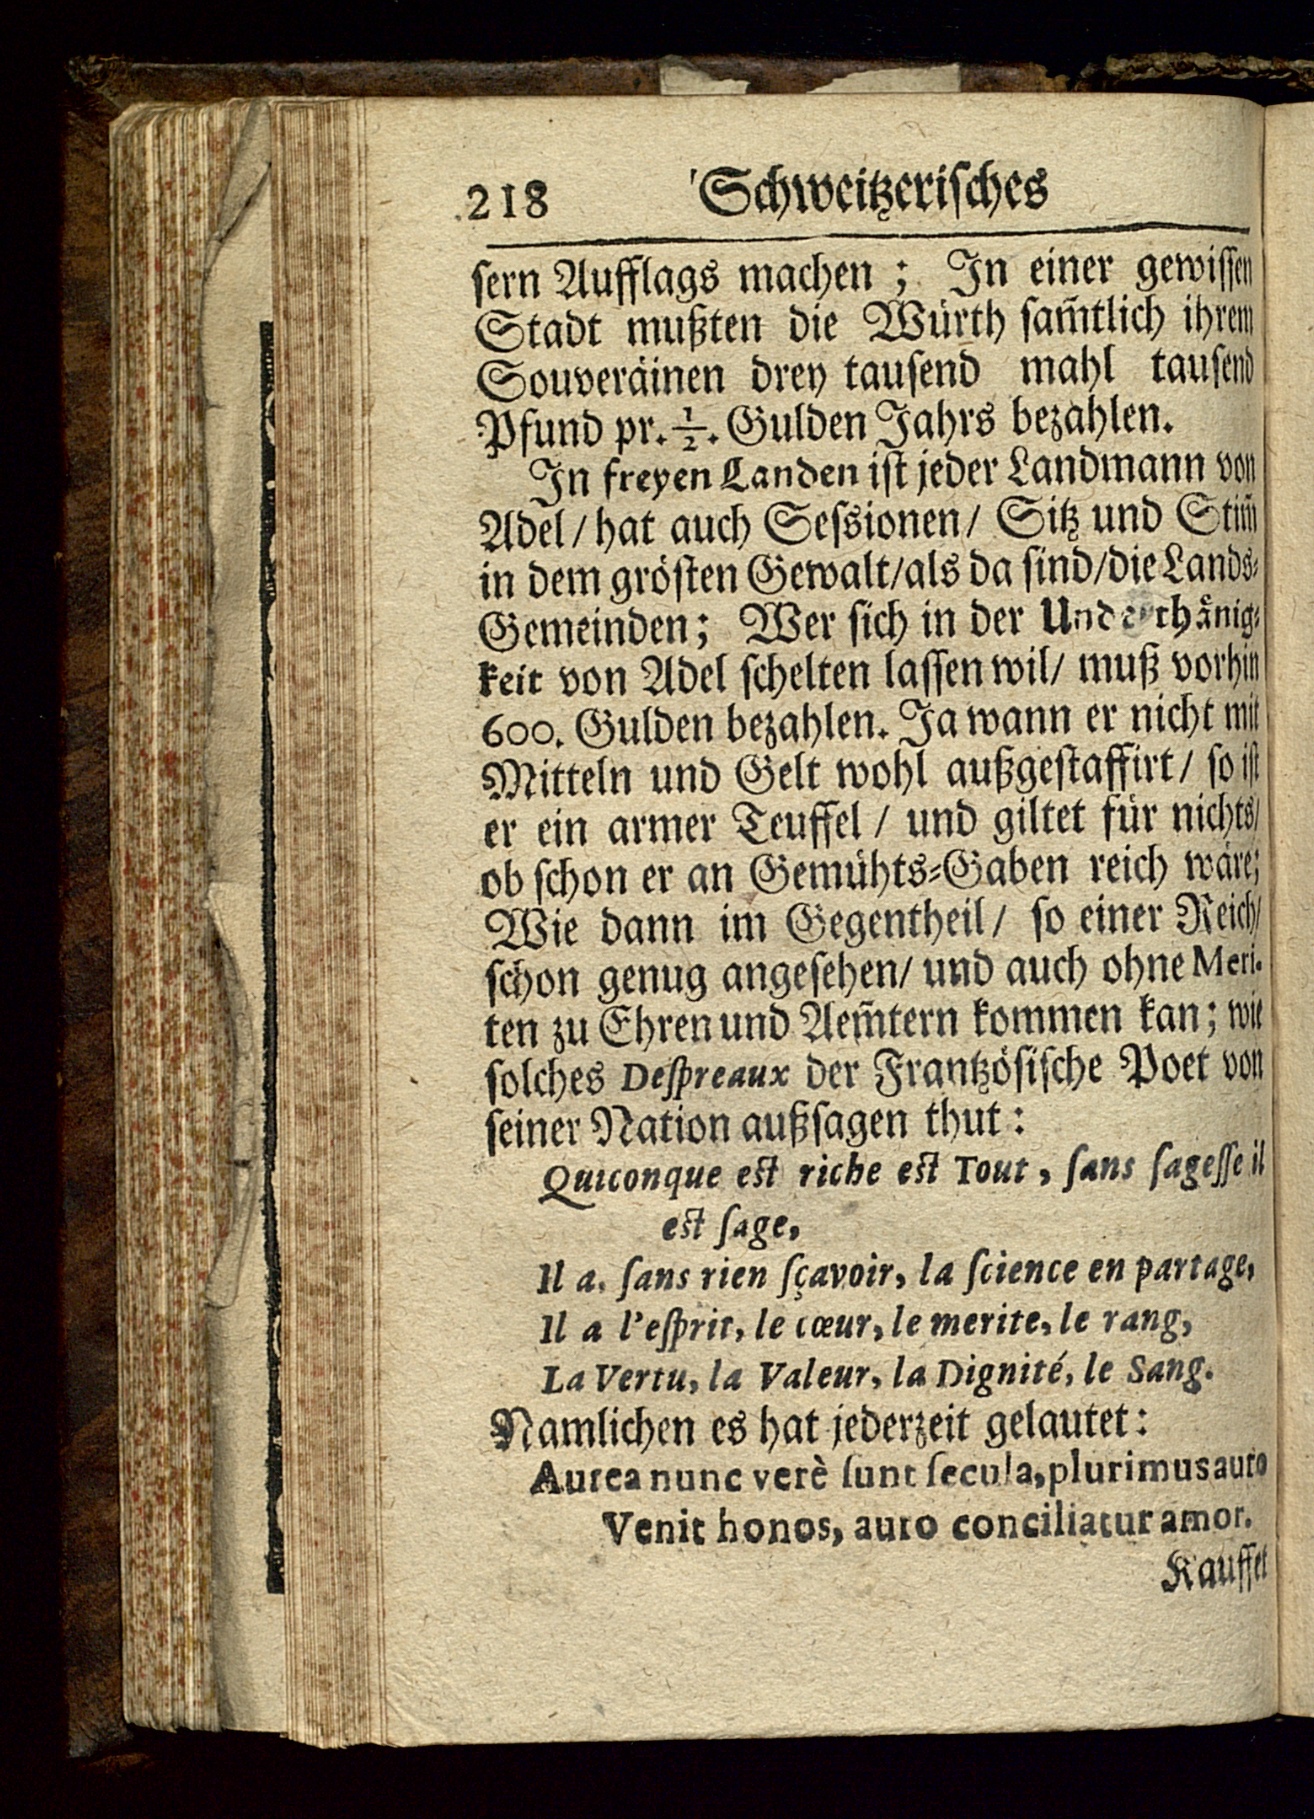 218 Schweitzerisches
sern Aufflags machen ; In einer gewissen
Stadt mußten die Würth sam̃tlich ihrem
Souveräinen drey tausend mahl tausend
Pfund pr. ½. Gulden Jahrs bezahlen.
In freyen Landen ist jeder Landmann von
Adel / hat auch Sessionen / Sitz und Stim̃
in dem grösten Gewalt / als da sind / die Lands-
Gemeinden; Wer sich in der Underthänig-
keit von Adel schelten lassen wil / muß vorhin
600. Gulden bezahlen. Ja wann er nicht mit
Mitteln und Gelt wohl außgestaffirt / so ist
er ein armer Teuffel / und giltet für nichts /
ob schon er an Gemühts-Gaben reich wäre;
Wie dann im Gegentheil / so einer Reich /
schon genug angesehen / und auch ohne Meri-
ten zu Ehren und Aem̃tern kommen kan; wie
solches Despreaux der Frantzösische Poet von
seiner Nation außsagen thut:
Quiconque est riche est Tout, sans sagesse il
est sage,
Il a. sans rien sçavoir, la science en partage,
Il a l'esprit, le cœur, le merite, le rang,
La Vertu, la Valeur, la Dignité, le Sang.
Namlichen es hat jederzeit gelautet:
Aurea nunc verè sunt secula, plurimus auro
Venit honos, auro conciliatur amor.
Kauffet